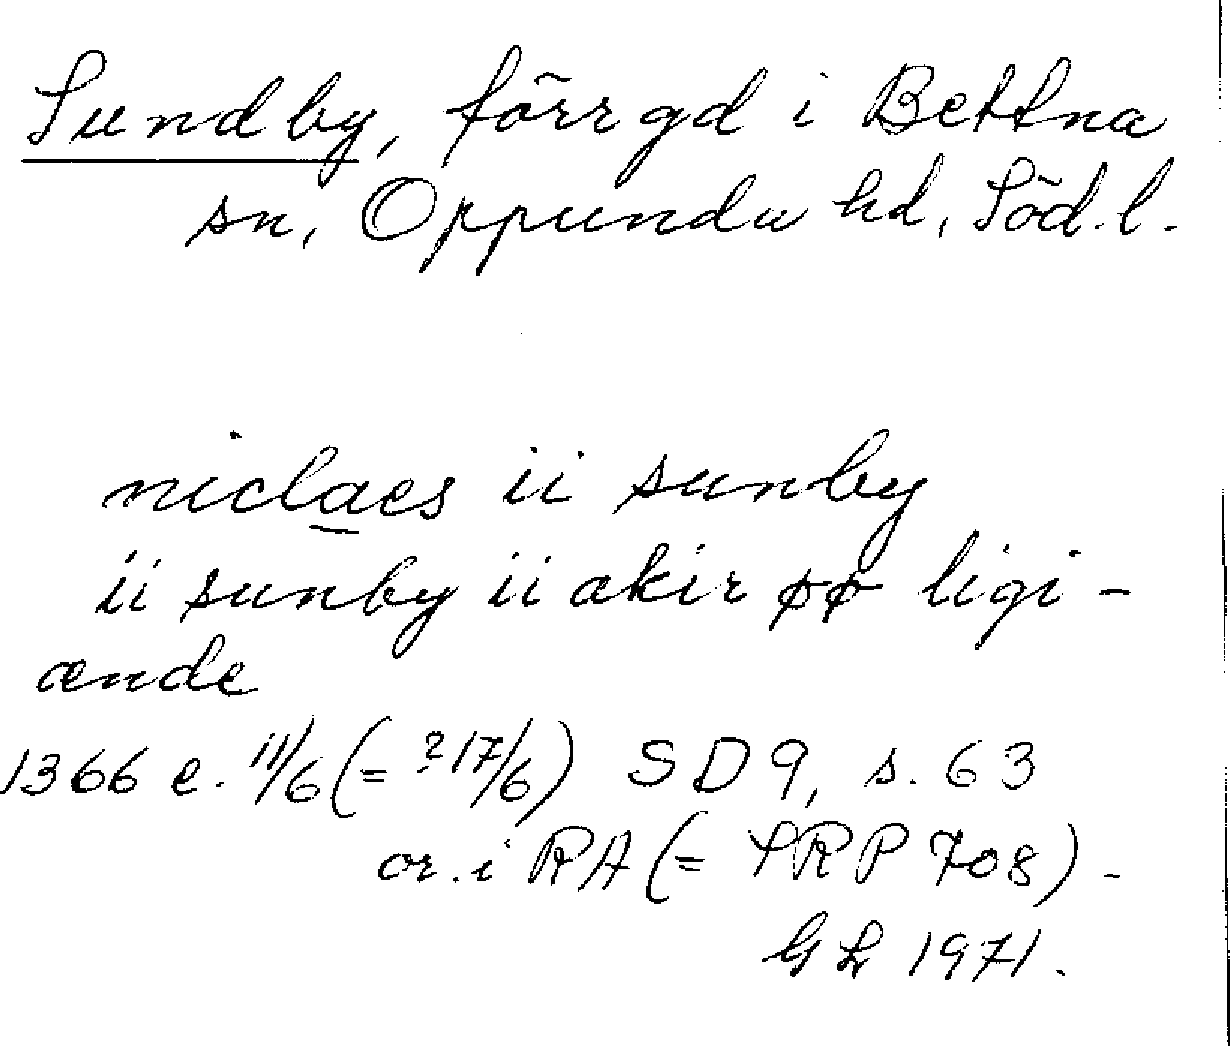 Sundby, förr gd i Bettna
sn, Oppunda hd, Söd. l.
niclaes ii sunby
ii sunby ii akir øø ligi-
ænde
1366 e. 11/6 (= ?17/6) SD 9, s. 63
or. i RA (= SRP 708) -
GL 1971.